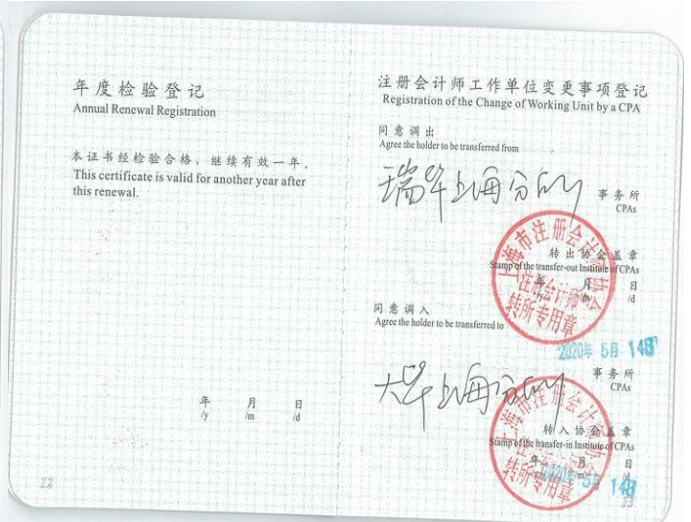 年度检验登记
Annual Renewal Registration
本证书经检验合格，继续有效一年。
This certificate is valid for another year after
this renewal.
年 月 日
/y /m /d
22
注册会计师工作单位变更事项登记
Registration of the Change of Working Unit by a CPA
同意调出
Agree the holder to be transferred from
瑞华上海分所
事务所
CPAs
上海市注册会计师协会
转出协会盖章
Stamp of the transfer-out Institute of CPAs
年 月 日
/y /m /d
注册会计师
转所专用章
2020年 5月 14日
同意调入
Agree the holder to be transferred to
大华上海分所
事务所
CPAs
上海市注册会计师协会
转入协会盖章
Stamp of the transfer-in Institute of CPAs
年 月 日
/y /m /d
注册会计师
转所专用章
2020年 5月 14日
23